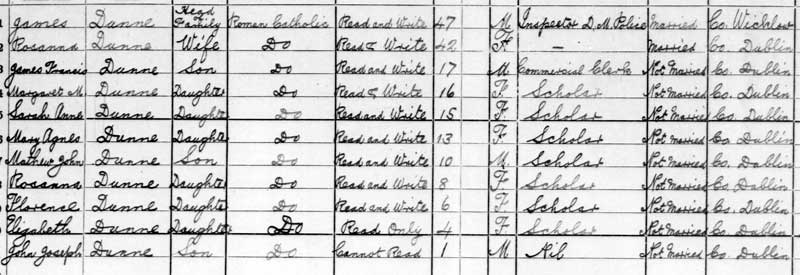 James Dunne Head of Family Roman Catholic Read and Write 47 M Inspector D. M. Police Married Co. Wicklow
2 Rosanna Dunne Wife Do Read & Write 42 F — Married Co. Dublin
3 James Francis Dunne Son Do Read and Write 17 M Commercial Clerk Not Married Co. Dublin
4 Margaret M. Dunne Daughter Do Read & Write 16 F Scholar Not Married Co. Dublin
5 Sarah Anne Dunne Daughter Do Read and Write 15 F Scholar Not Married Co. Dublin
Mary Agnes Dunne Daughter Do Read and Write 13 F Scholar Not Married Co. Dublin
Mathew John Dunne Son Do Read and Write 10 M Scholar Not Married Co. Dublin
Rosanna Dunne Daughter Do Read and Write 8 F Scholar Not Married Co. Dublin
Florence Dunne Daughter Do Read and Write 6 F Scholar Not Married Co. Dublin
Elizabeth Dunne Daughter Do Read Only 4 F Scholar Not Married Co. Dublin
John Joseph Dunne Son Do Cannot Read 1 M Nil Not Married Co. Dublin